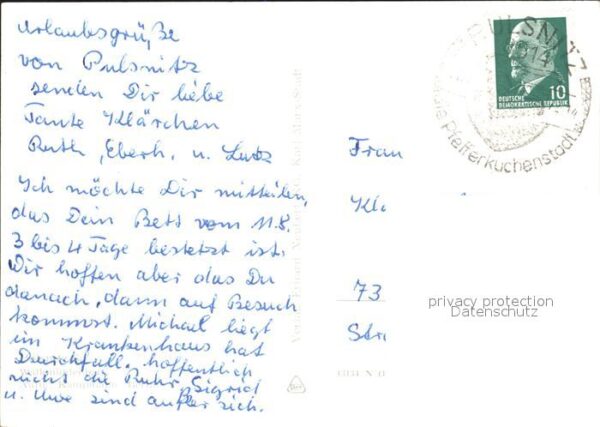 Urlaubsgrüße
von Pulsnitz
senden Dir liebe
Tante Klärchen
Ruth, Eberh. u. Lutz
Ich möchte Dir mitteilen,
das Dein Bett vom 11.8.
3 bis 4 Tage besetzt ist.
Wir hoffen aber das Du
danach, dann auf Besuch
kommst. Michael liegt
im Krankenhaus hat
Durchfall, hoffentlich
nicht die Ruhr, Sigrid
u. Uwe sind außer sich.
PULSNITZ
die Pfefferkuchenstadt
10
DEUTSCHE
DEMOKRATISCHE REPUBLIK
Frau
Kl
73
Str
privacy protection
Datenschutz